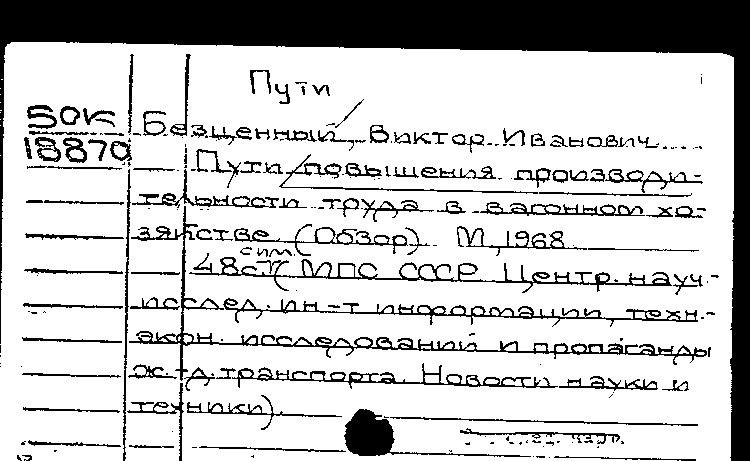 Пути
БОК Безценный, Виктор Иванович.
18870 Пути повышения производи-
тельности труда в вагонном хо-
зяйстве (Обзор) М, 1968
48с. (МПС СССР Центр. науч.-
исслед. ин-т информации, техн.-
экон. исследований и пропаганды
ж.-д. транспорта. Новости науки и
техники).